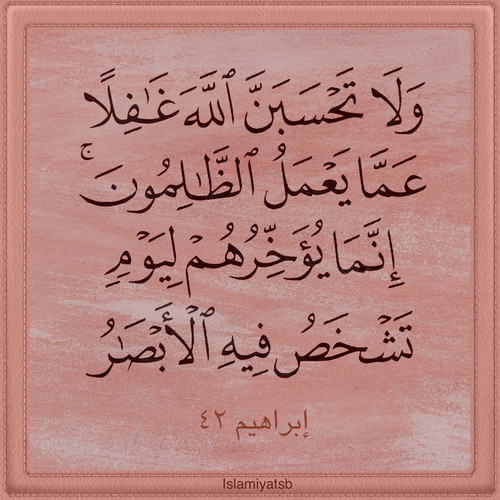 وَلَا تَحْسَبَنَّ ٱللَّهَ غَـٰفِلًا
عَمَّا يَعْمَلُ ٱلظَّـٰلِمُونَ ۚ
إِنَّمَا يُؤَخِّرُهُمْ لِيَوْمٍ
تَشْخَصُ فِيهِ ٱلْأَبْصَـٰرُ
إبراهيم ٤٢
Islamiyatsb